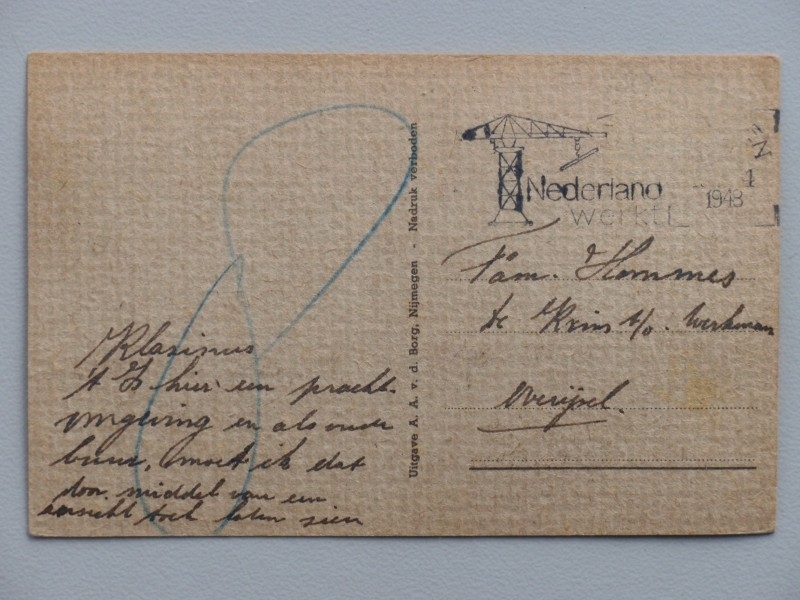 Klasinus
't Is hier een pracht-
omgeving en als oude
buur, moet ik dat
door middel van een
ansicht toch laten zien
Uitgave A. A. v. d. Borg, Nijmegen - Nadruk verboden
Nederland
werkt!
1948
4
Fam. Hommes
de Krim b/o. Werkman
Overijsel.